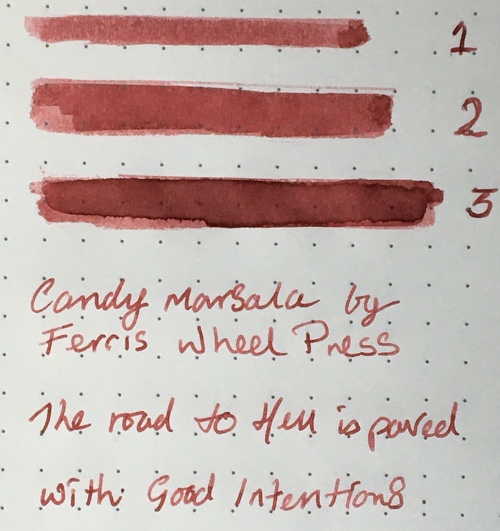 1
2
3
Candy Marsala by
Ferris Wheel Press
The road to Hell is paved
with Good Intentions